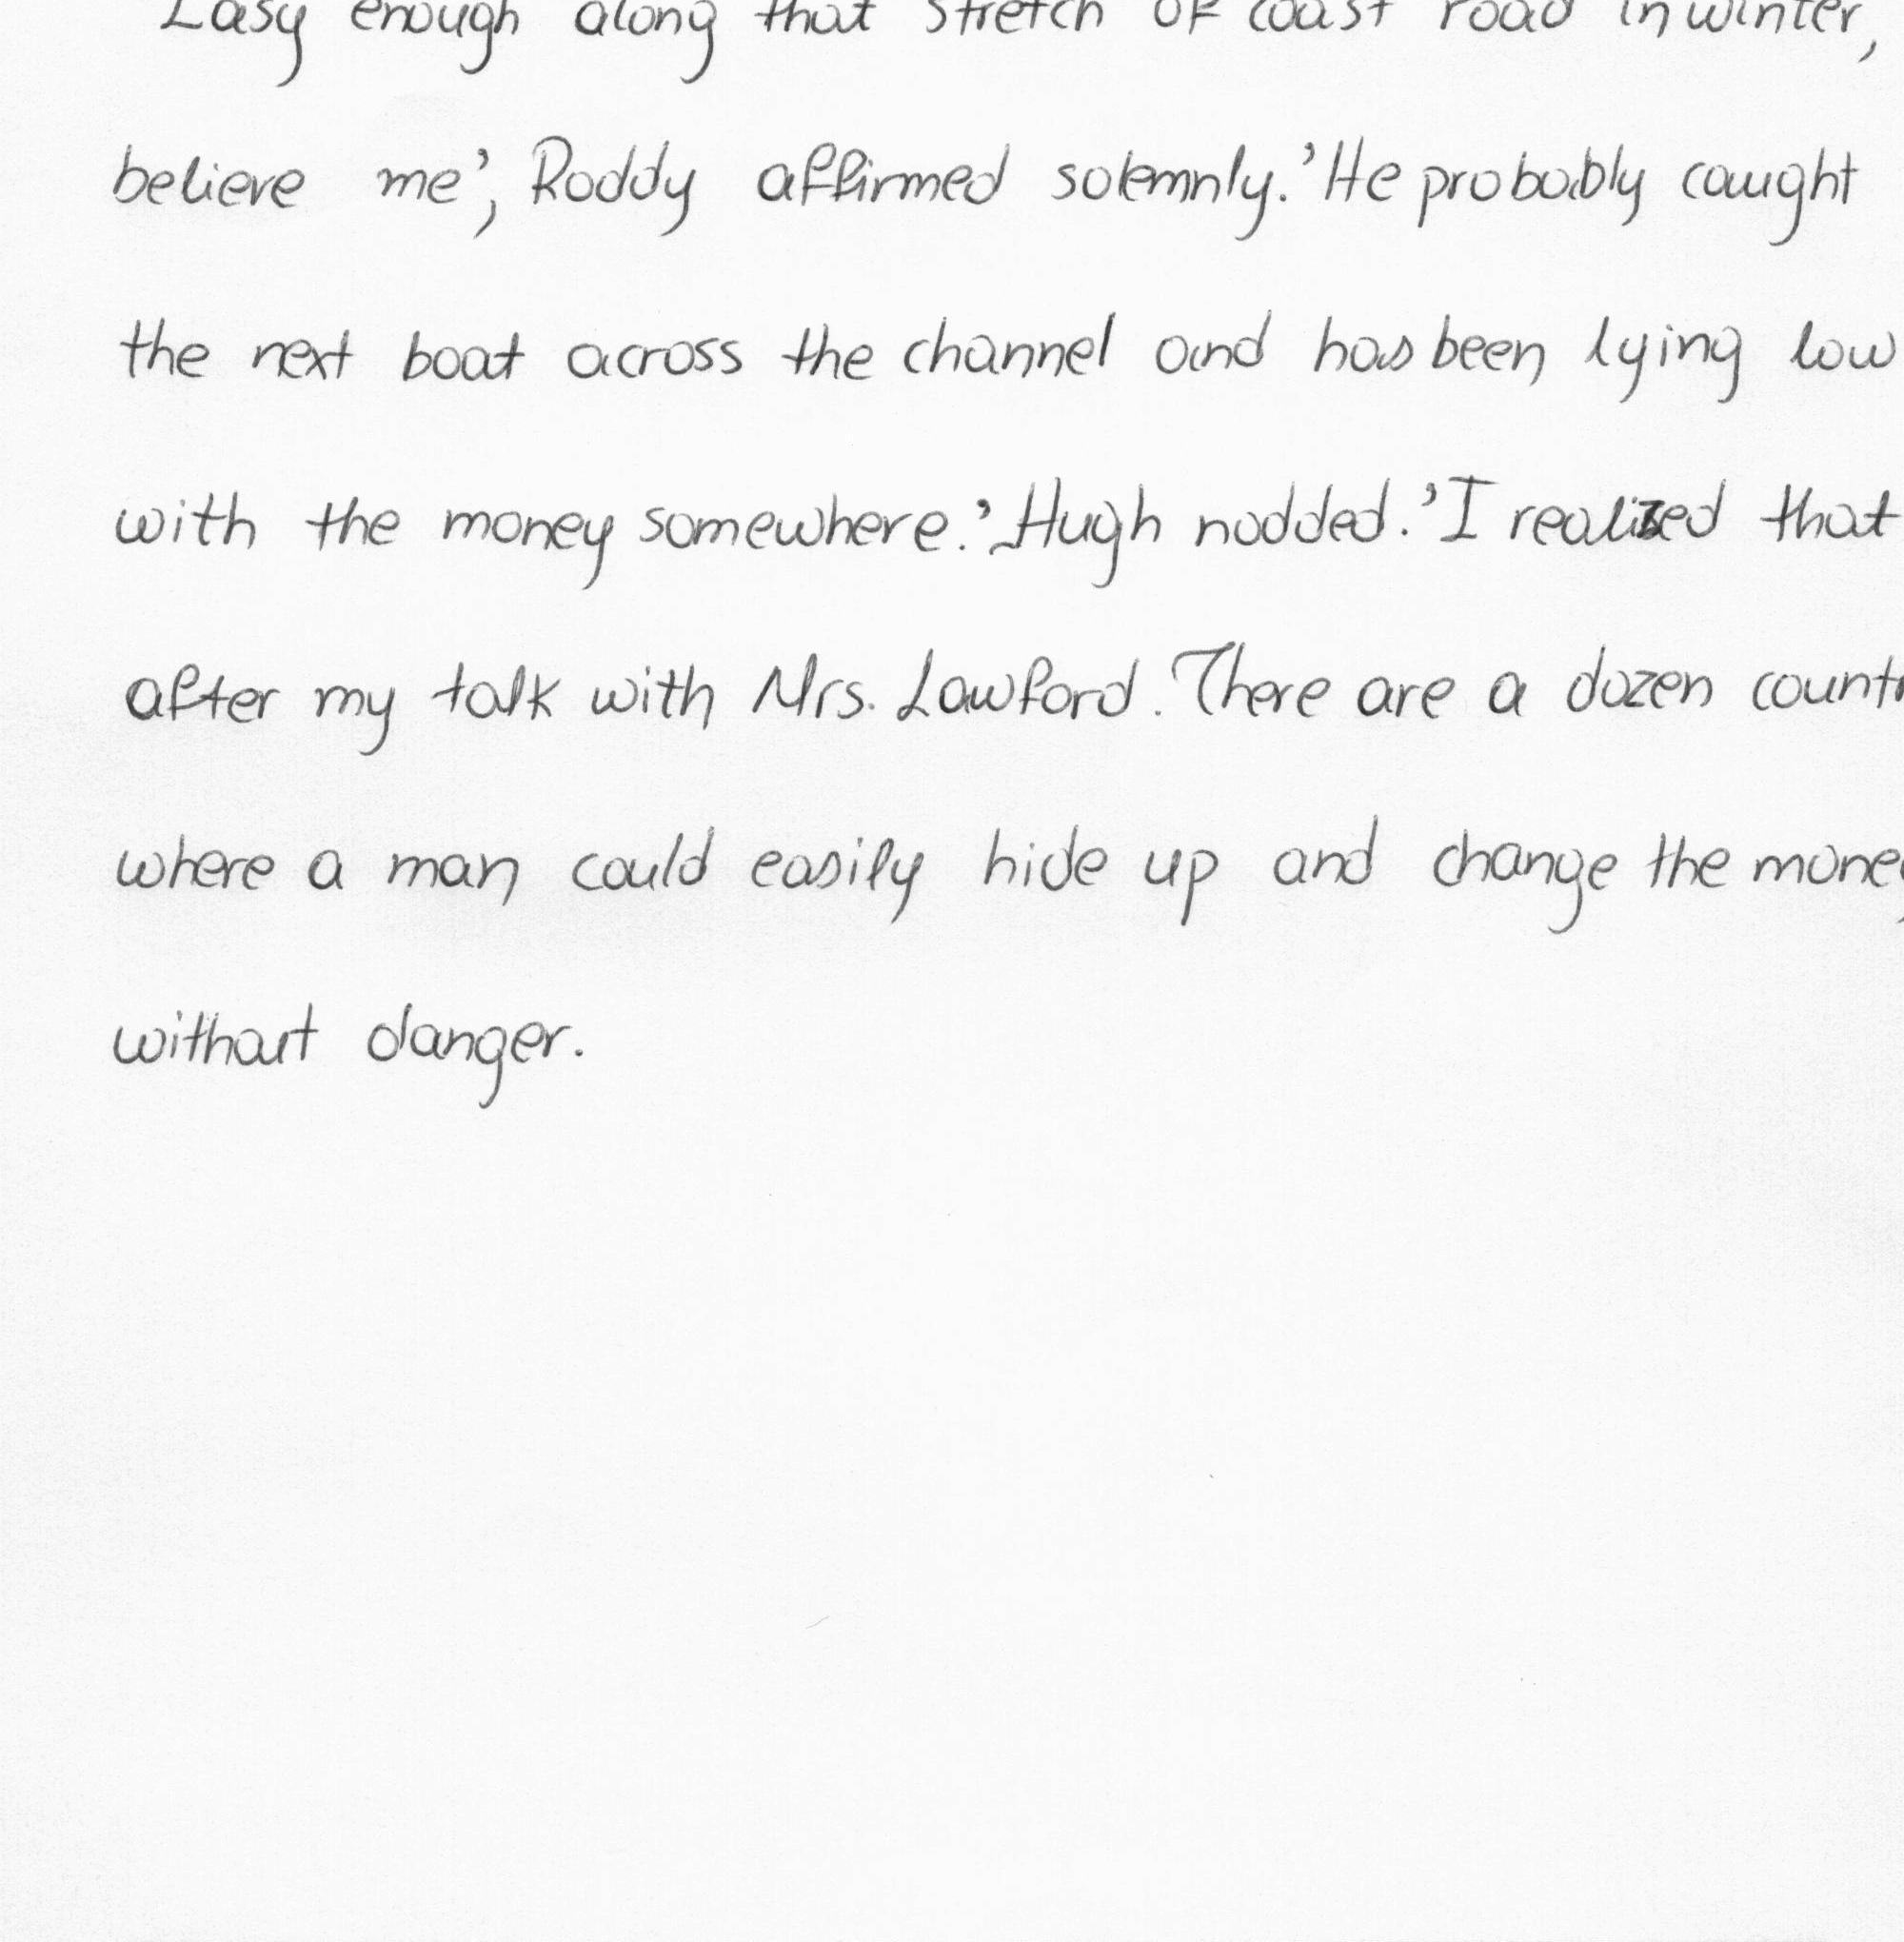 Easy enough along that stretch of coast road in winter,
believe me', Roddy affirmed solemnly. 'He probably caught
the next boat across the channel and has been lying low
with the money somewhere.' Hugh nodded. 'I realized that
after my talk with Mrs. Lawford. There are a dozen
where a man could easily hide up and change the money
without danger.